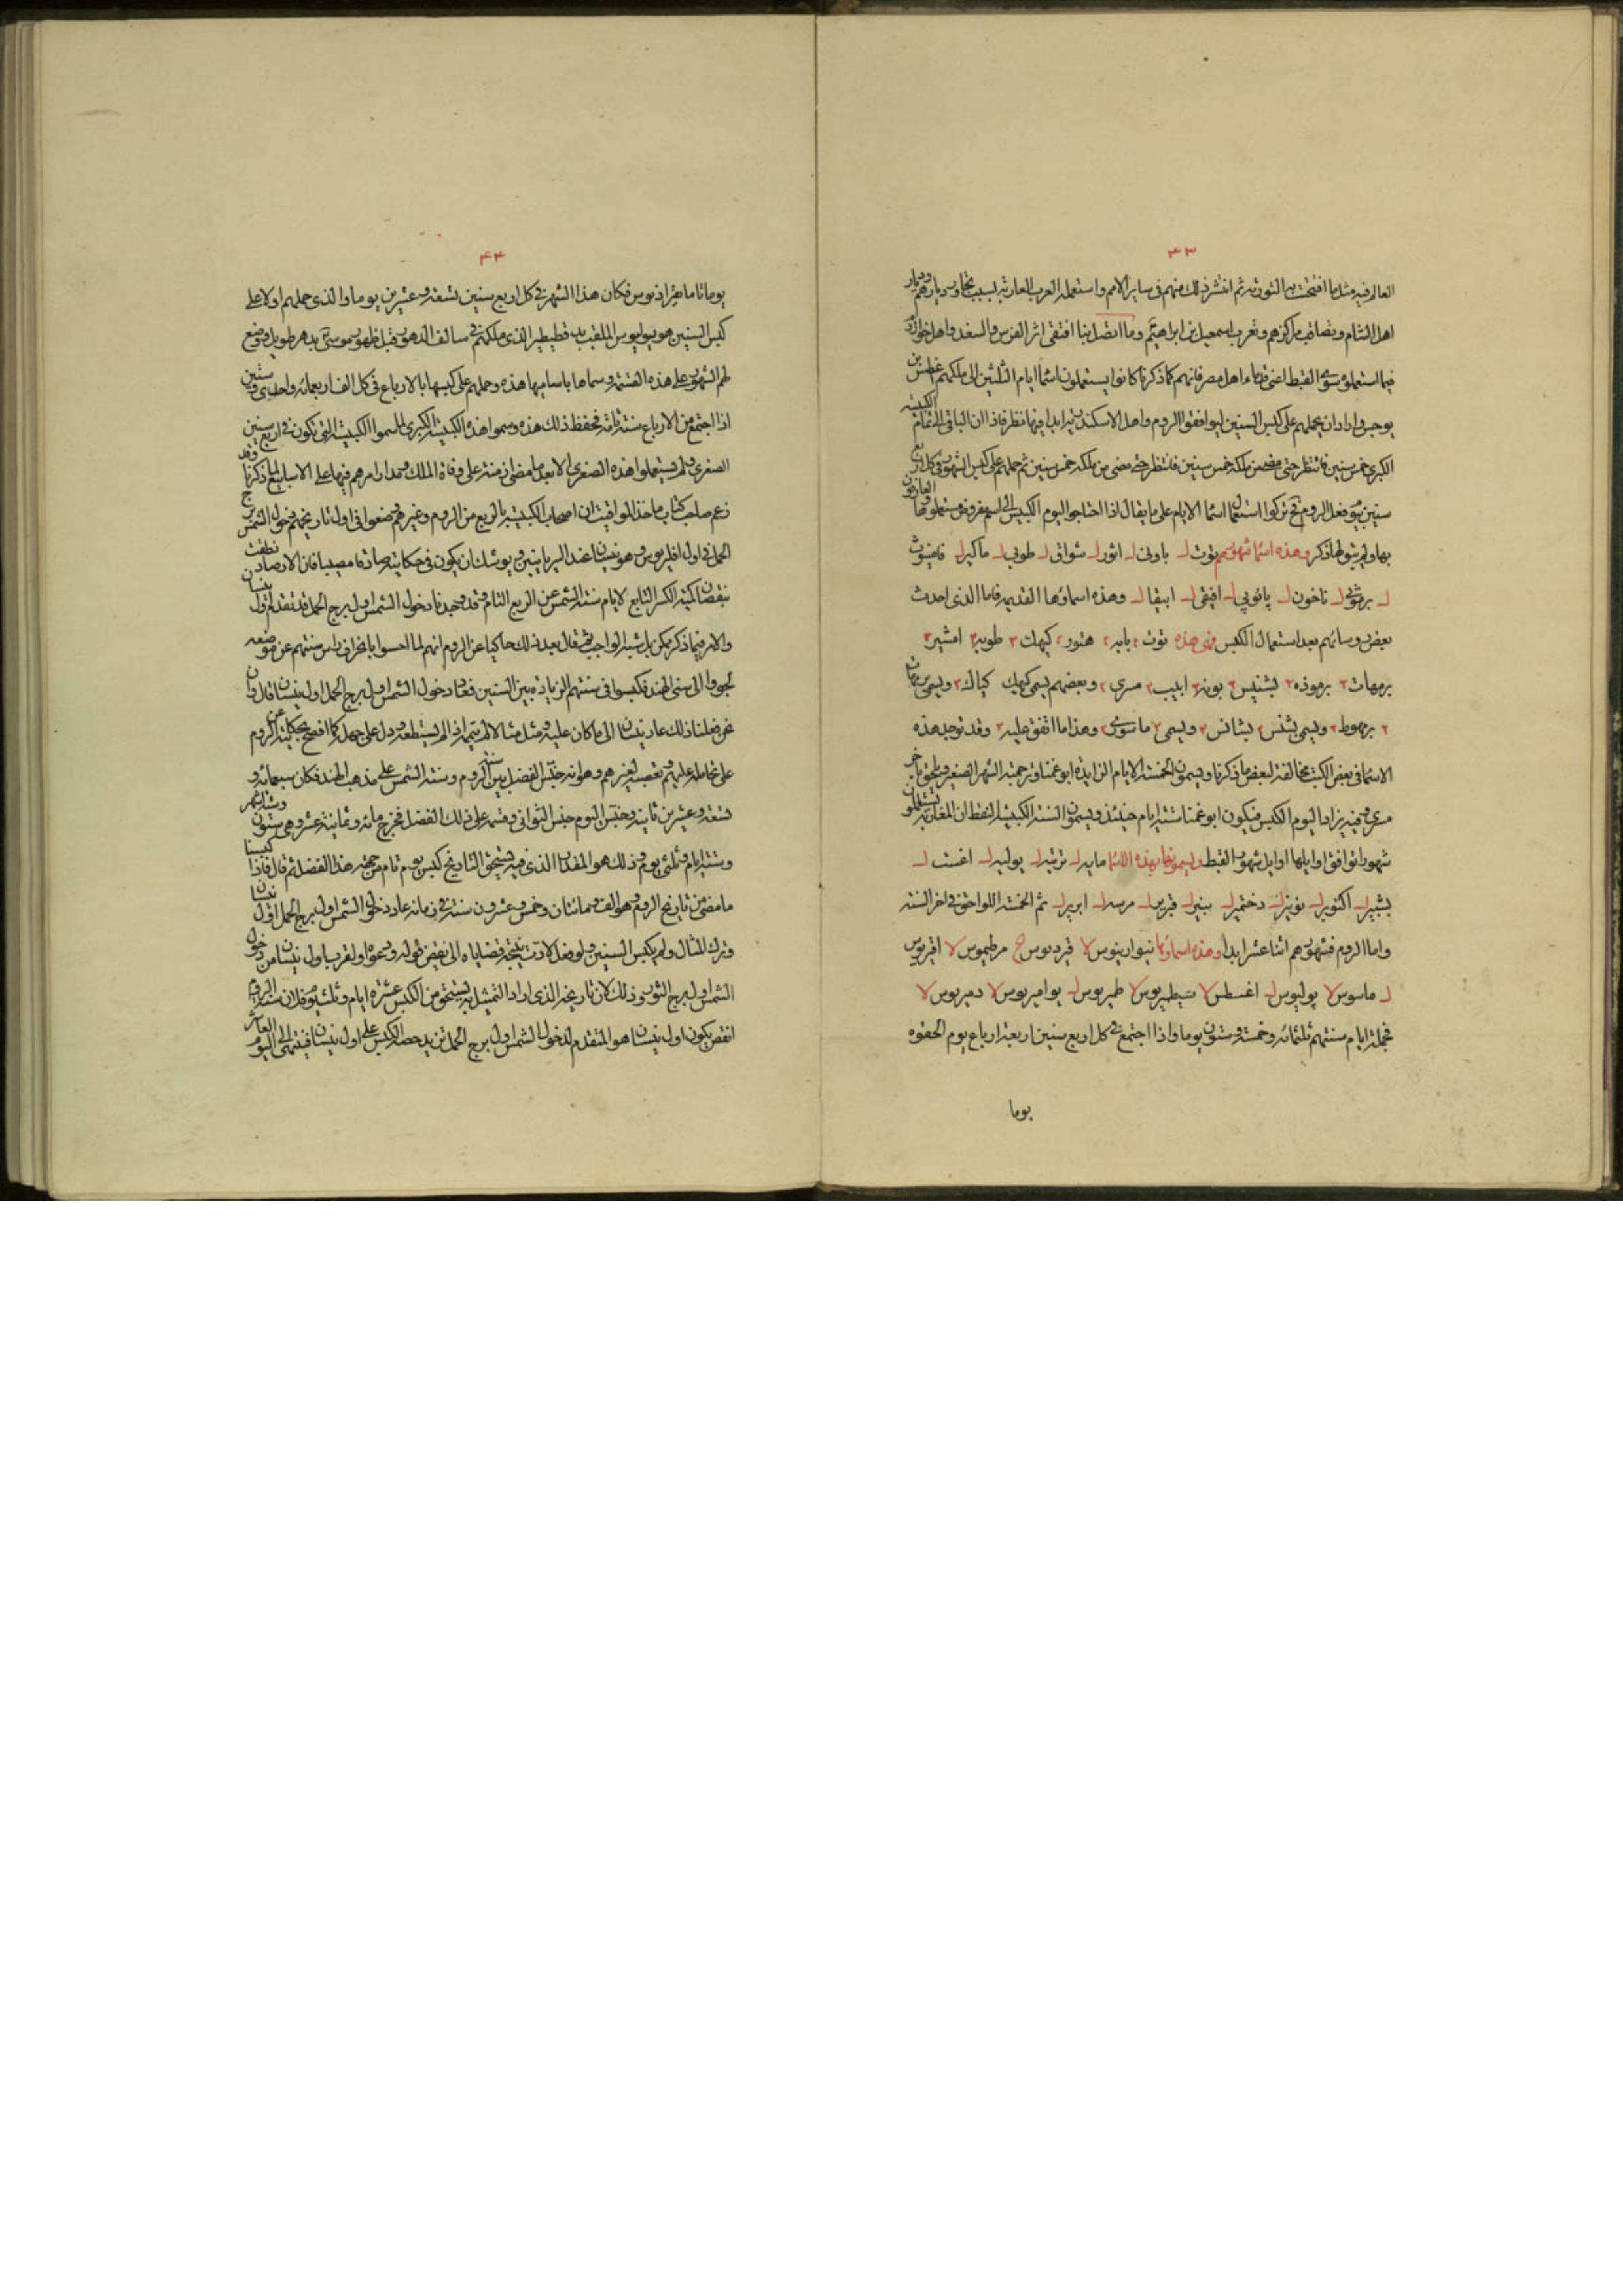 ۴۳
العالم فيه مثل ما افتتحت به التورية ثم انتشر ذلك منهم في ساير الامم واستعمله العرب العاربة بسبب تجاور ديارهم وديار
اهل الشام وتصاقب مراكزهم وتعرب اسمعيل بن ابراهيم وما اتصل بنا اقتفى اثر الفرس والسغد واهل خوارزم
فيما استعملوه سوى القبط اعنى قدماء اهل مصر فانهم كما ذكرنا كانوا يستعملون اسما ايام الثلثين الى ملكهم اغطس بن
يوجس واراد ان يحملهم على كبس السنين ليوافقوا الروم واهل الاسكندرية ابدا فيها نظر فاذا ان الباقى الى تمام الكبيسة
الكبرى خمس سنين فانتظر حتى مضى من ملكه خمس سنين فانتظر حتى مضى من ملكه خمس سنين ثم حملهم على كبس الشهور فى كل اربع
سنين بيوم فعل الروم فح تركوا استعمال اسما الايام على ما يقال اذا احتاجوا اليوم الكبيس الى اسم يعرفونه ومستعملوها العارفون
بها ولم يبق لها ذكر وهذه اسما شهورهم توت ل باوبى ل اثور ل شواق ل طوبى ل ماكير ل فامينوث
ل برموثى ل ناخون ل پائوپى ل افيفى ل ابيقا ل وهذه اسماؤها القديمه فاما الذى احدث
بعض روسائهم بعد استعمال الكبس فهى هذه توت ۲ بابه ۲ هتور ۲ كيهك ۳ طوبه ۳ امشير ۳
برمهات ۳ برموذه ۲ بشنيس ۳ بونه ۳ ابيب ۳ مسرى ۲ وبعضهم يسمى كيهك كياك ۳ ويسمى برمهات
۲ برمهوط ۳ ويسمى بشنس ۲ بشانس ۳ ويسمى ۲ ماسورى ۲ وهذا ما اتفق عليه ۳ وقد توجد هذه
الاسما فى بعض الكتب مخالفة لبعض ما ذكرنا ويسمون الخمسة الايام الزايدة ابوغمنا وترجمته الشهر الصغير ويلحق باخر
مسرى وفيه يزاد اليوم الكبس فيكون ابوغمنا ستة ايام حينئذ ويسمون السنة الكبيسة النقط ان المغاربة يستعملون
شهورا توافق اوايلها اوايل شهور القبط ويسمونها بهذه الاسما مايه ل ترتيه ل يوليه ل اغست ل
بشپر ل اكتوبر ل نوبنر ل دختمبر ل ينير ل فبرير ل مرسه ل ابرير ل ثم الخمسة اللواحق فى اخر السنة
واما الروم فشهورهم اثنا عشر ابدا وهذه اسماؤها نيوارينوس لا قبرديوس ح مرطيوس لا افريوس
ل ماسوس لا يوليوس ل اغسطس لا سيطمبريوس لا طمبريوس ل يوامبريوس لا دمبريوس لا
فجملة ايام سنتهم ثلثمائه وخمسة وستون يوما واذا اجتمع فى كل اربع سنين اربعة ارباع يوم الحقوه
يوما
۴۴
يوما تاما بفبراذيوس فكان هذا الشهر فى كل اربع سنين تسعة وعشرين يوما والذى حملهم اولا على
كبس السنين هو يوليوس الملقب بدقطيطر الذى ملكهم فى سالف الدهور قبل ظهور موسى بدهر طويل وضع
لهم الشهور على هذه القسمة وسماها باساميها هذه وحملهم على كبسها بالارباع فى كل الف اربعمائه واحدى وستين
اذا اجتمع من الارباع سنة تامة تحفظ ذلك هذه وسموا هذه الكبيسة الكبرى لما سموا الكبيسة التى تكون فى اربع سنين
الصغرى ولم يستعملوا هذه الصغرى الا بعد ما مضى ازمنة على وفاة الملك ومدار امرهم فيها على الاسابيع لما ذكرنا وقد
زعم صاحب كتاب ماخذ المواقيت ان اصحاب الكبيسة بالربع من الروم وغيرهم وضعوا فى اول تاريخهم دخول الشمس برج
الحمل فى اول افليريوس وهو نيسان عند السريانيين ويوشك ان يكون فى حكايته صادقا مصيبا فان الارصاد نطقت
بنقصان كمية الكسر التابع لايام سنة الشمس عن الربع التام وقد وجدنا دخول الشمس اول برج الحمل قد تقدم اول نيسان
والامر فيما ذكر ممكن بل شبه الواجب ثم قال بعد ذلك حاكيا عن الروم انهم لما احسوا بانحراف راس سنتهم عن موضعه
لجووا الى سنى الهند فكبسوا فى سنتهم الزيادة بين السنتين فعاد دخول الشمس اول برج الحمل اول نيسان قال وان
نحن فعلنا ذلك عاد نيسان الى ما كان عليه ومثل مثالا لم يتممه اذا لم يستطعه ودل على جهله كما افصح بحكايته عن الروم
على تحامله عليهم وتعصبه لغيرهم وهو انه جنس الفضل بين سنة الروم وسنة الشمس على مذهب الهند فكان سبعمائه و
تسعة وعشرين ثانية وجنس اليوم جنس الثوانى وقسمه على ذلك الفضل فخرج مائه وثمانية عشر وهى سنون وستة اشهر
وستة ايام وثلثى يوم وذلك هو المقدار الذى فيه يستحق التاريخ كبس يوم تام من جهة هذا الفضل ثم قال فاذا كبسنا
ما مضى من تاريخ الروم وهو الف ومائتان وخمس وعشرون سنة فى زمانه عاد دخول الشمس اول برج الحمل اول نيسان
وترك المثال ولم يكبس السنين ولو فعل لادت نتيجة قضاياه الى نقيض قوله ودعواه ولقرب اول نيسان من دخول
الشمس اول برج الثور وذلك لان تاريخه الذى اراد التمثيل به يستحق من الكبس عشرة ايام وثلثى يوم فلان سنة الروم
انقص يكون اول نيسان هو المتقدم لدخول الشمس اول برج الحمل ثم يزيد حصة الكبس على اول نيسان فينتهى الى اليوم العاشر